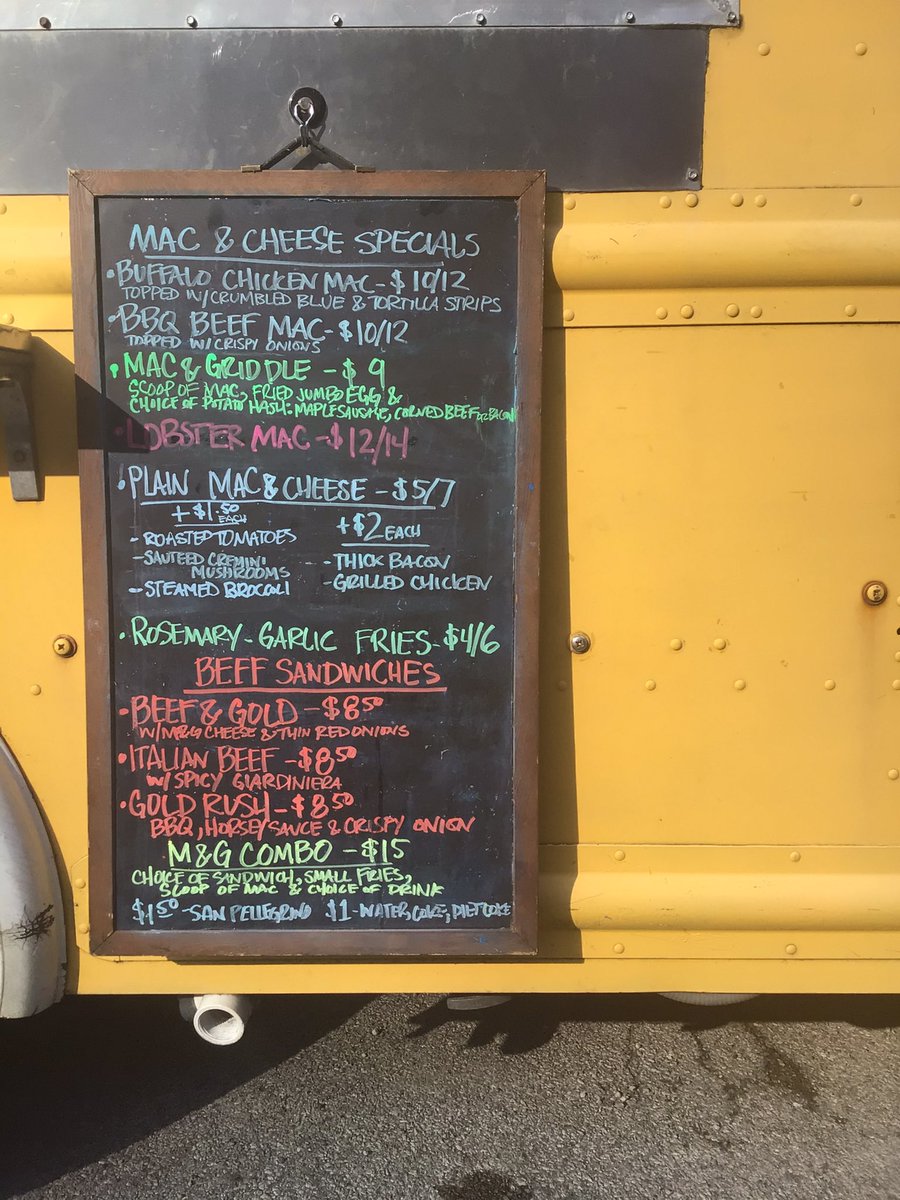 MAC & CHEESE SPECIALS
• BUFFALO CHICKEN MAC - $10/12
TOPPED W/ CRUMBLED BLUE & TORTILLA STRIPS
• BBQ BEEF MAC - $10/12
TOPPED W/ CRISPY ONIONS
• MAC & GRIDDLE - $9
SCOOP OF MAC, FRIED JUMBO EGG &
CHOICE OF POTATO HASH: MAPLE SAUSAGE, CORNED BEEF OR BACON
• LOBSTER MAC - $12/14
• PLAIN MAC & CHEESE - $5/7
+$1.50 EACH +$2 EACH
- ROASTED TOMATOES
- SAUTEED CREMINI MUSHROOMS - THICK BACON
- STEAMED BROCOLI - GRILLED CHICKEN
• ROSEMARY - GARLIC FRIES - $4/6
BEEF SANDWICHES
• BEEF & GOLD - $8.50
W/ M&G CHEESE & THIN RED ONIONS
• ITALIAN BEEF - $8.50
W/ SPICY GIARDINIERA
• GOLD RUSH - $8.50
BBQ, HORSEY SAUCE & CRISPY ONION
M&G COMBO - $15
CHOICE OF SANDWICH, SMALL FRIES,
SCOOP OF MAC & CHOICE OF DRINK
$1.50 - SAN PELLEGRINO $1 - WATER, COKE, DIET COKE